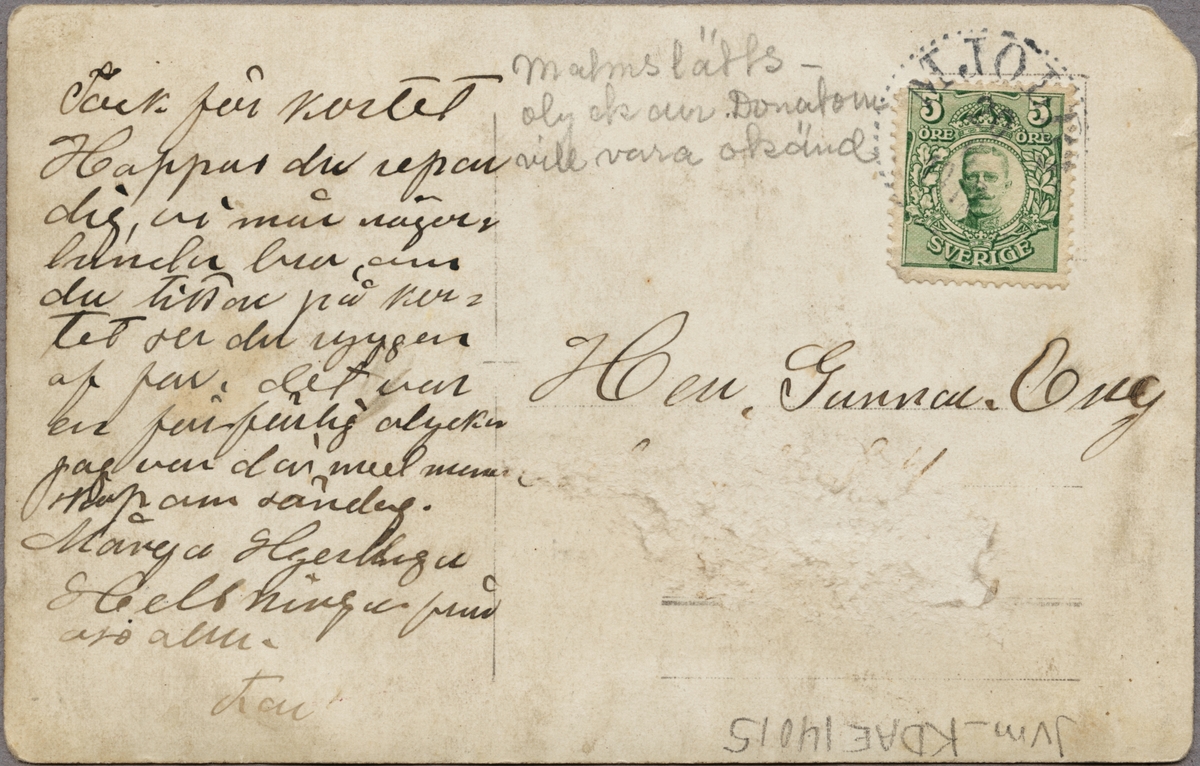 Tack för kortet
Happas du repar
dig, vi mår någor-
lunda bra, om
du tittar på kor-
tet ser du ryggen
af far. det var
en förfärlig olycka
jag var där med man
skap om söndag.
Många Hjertliga
Helsninga från
oss alla.
Far
Malmslätts-
olyckan. Donatorn
vill vara okänd
MJÖL
5 5
ÖRE ÖRE
SVERIGE
Herr. Gunnar.
Jvm-KDAE14015